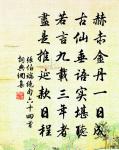 赫赤金丹一日成
古仙垂语实堪听
若言九载三年者
尽是推延款日程
张伯端绝句六十四首
词典网集